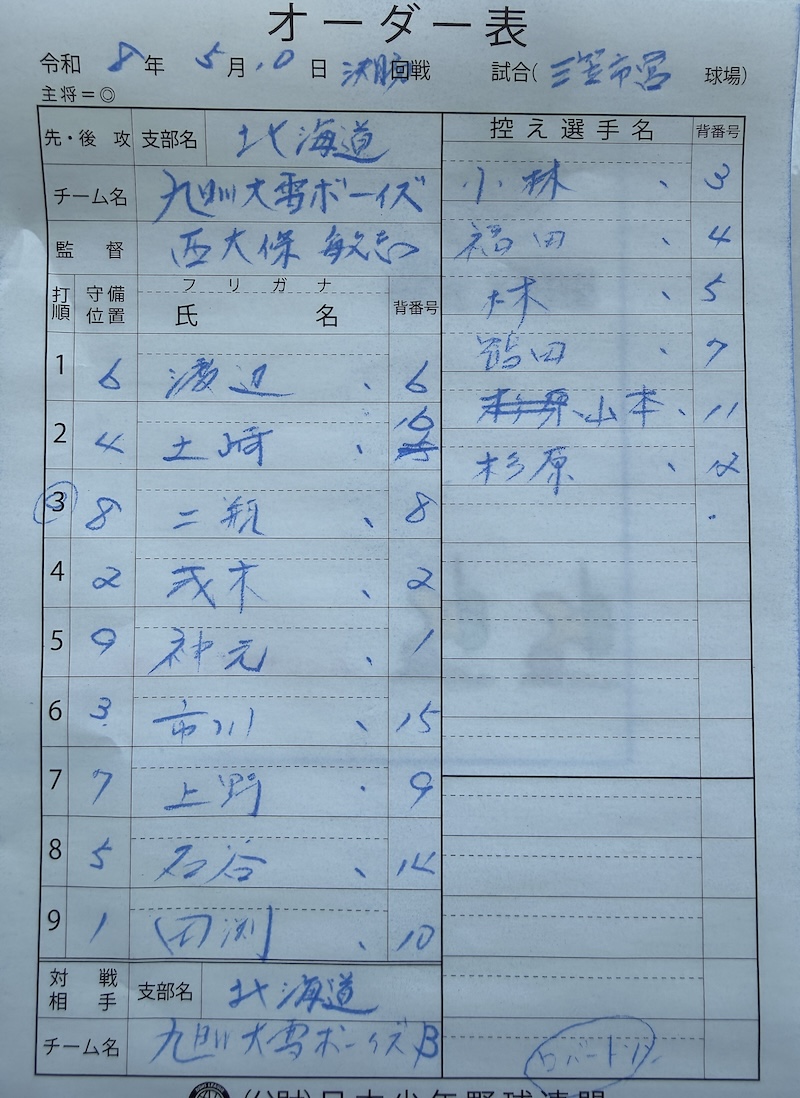 オーダー表
令和 8年 5月10日 決勝回戦 試合(三笠市営 球場)
主将=◎
先・後 攻 支部名 北海道
チーム名 旭川大雪ボーイズ
監督 西大條 敏志
打順 守備位置 フリガナ 氏名 背番号
1 6 渡辺 6
2 4 土崎 16
3 8 二瓶 8
4 2 茂木 2
5 9 神元 1
6 3 市川 15
7 7 上野 9
8 5 石谷 14
9 1 田渕 10
対戦相手 支部名 北海道
チーム名 旭川大雪ボーイズB
控え選手名 背番号
小林 3
福田 4
大林 5
鶴田 7
山本 11
杉原 12
(公財)日本少年野球連盟